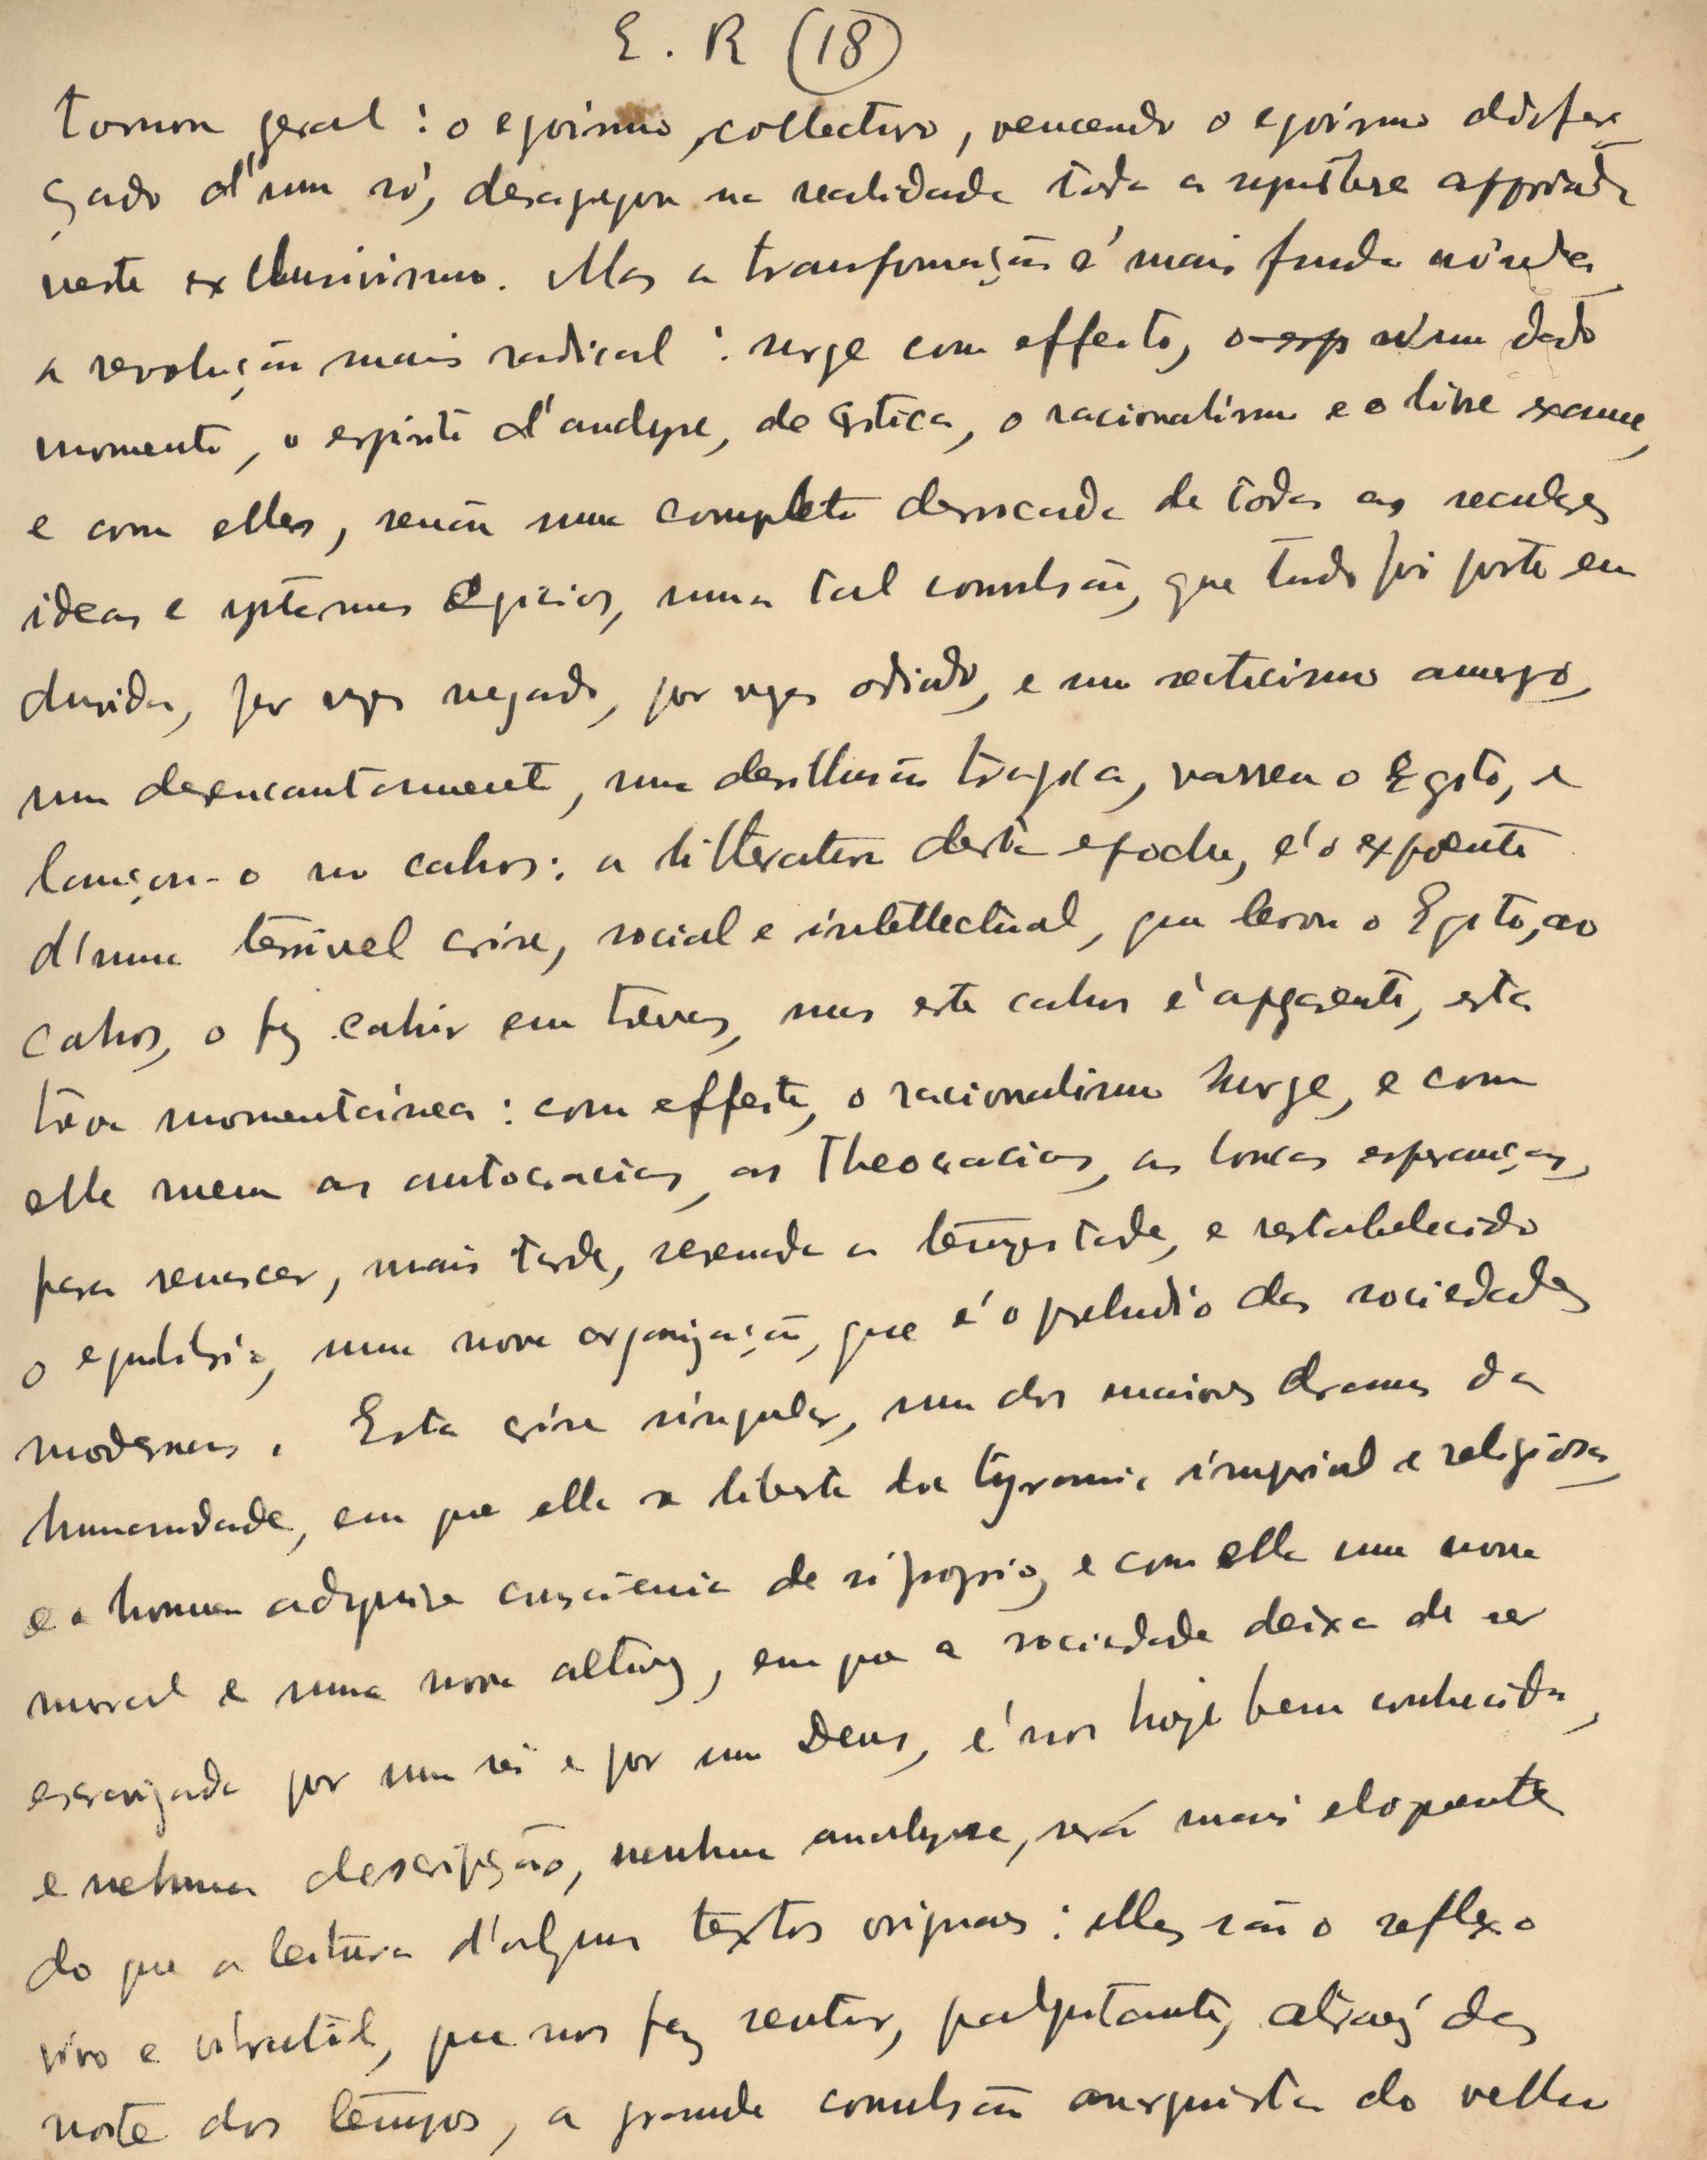 E. R (18)
tornou geral : o egoismo collectivo, vencendo o egoismo disfar
çado d'um só, desagregou na realidade toda a apoiada
neste exclusivismo. Mas a transformação é mais funda ainda,
a revolução mais radical : surge com effeito, o esp n'um dado
momento, o espirito d'analyse, de critica, o racionalismo e o livre exame,
e com elles, senão uma completa derrocada de todas as seculares
ideas e systemas egipcios, uma tal convulsão, que tudo foi posto em
duvida, por vezes negado, por vezes odiado, e um scaticismo amargo,
um desencantamento, uma desillusão tragica, varreu o Egito, e
lançou-o no cahos : a litteratura desta epocha, é o expoente
d'uma terrivel crise, social e intellectual, que levou o Egito, ao
cahos, o fez cahir em trevas, mas este cahos é apparente, esta
treva momentánea : com effeito, o racionalismo surge, e com
elle morrem as autocracias, as theocracias, as loucas esperanças,
para renascer, mais tarde, serenada a tempestade, e restabelecido
o equilibrio, uma nova organização, que é o preludio das sociedades
modernas. Esta crise singular, um dos maiores dramas da
humanidade, em que ella se liberta da tyrannia imperial e religiosa,
e o homem adquire consciencia de si proprio, e com ella uma nova
moral e uma nova altivez, em que a sociedade deixa de ser
escravizada por um rei e por um Deus, é nos hoje bem conhecida,
e nehuma descripção, nenhuma analyse, será mais eloquente
do que a leitura d'alguns textos originaes : elles são o reflexo
vivo e vibratil, que nos faz sentir, palpitante, através da
noite dos tempos, a grande convulsão anarquista do velho